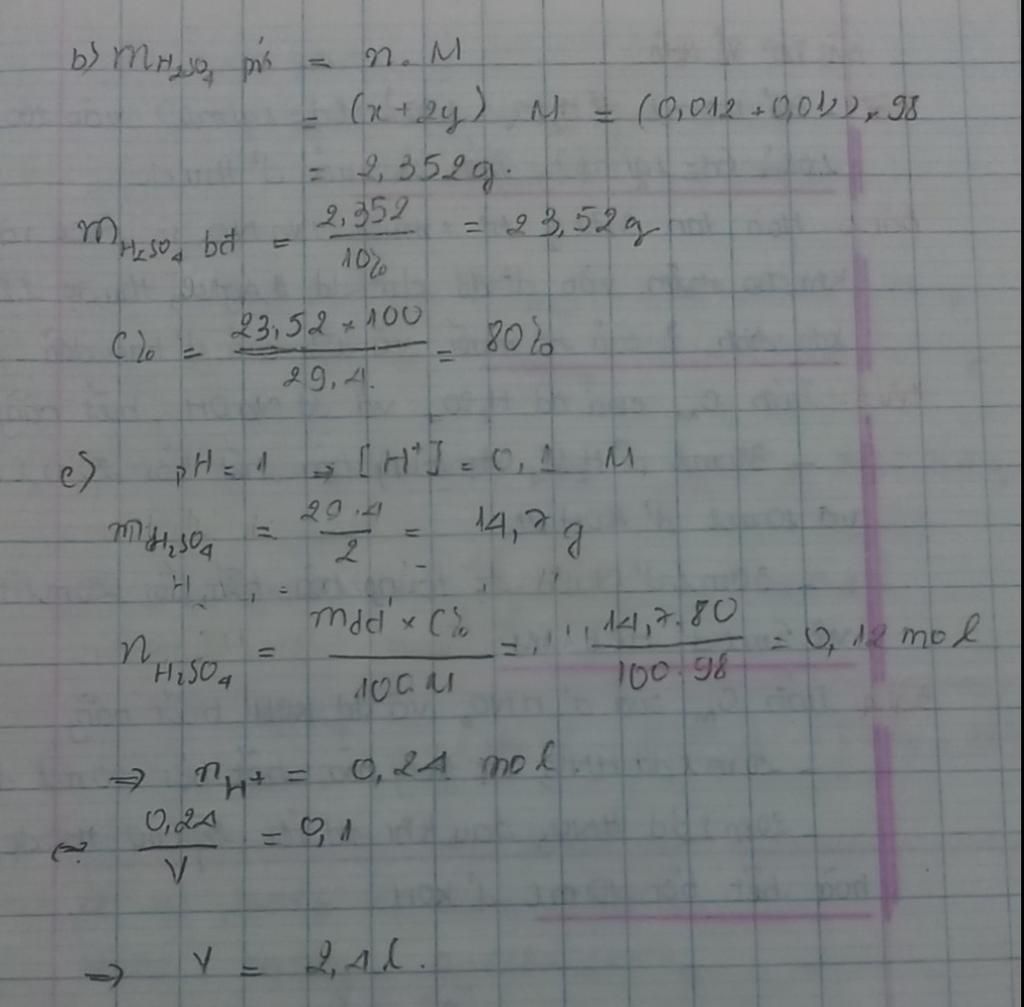 b) mH₂SO₄ pứ = n . M
= (x + 2y) M = (0,012 + 0,012) × 98
= 2,352g.
mH₂SO₄ bđ = 2,352 / 10% = 23,52g
C% = 23,52 × 100 / 29,4. = 80%
c) pH = 1 → [H⁺] = 0,1 M
mH₂SO₄ = 29.4 / 2 = 14,7 g
nH₂SO₄ = mdd × C% / 100.M = 14,7.80 / 100.98 = 0,12 mol
⇒ nH⁺ = 0,24 mol
0,24 / V = 0,1
⇒ V = 2,4l.